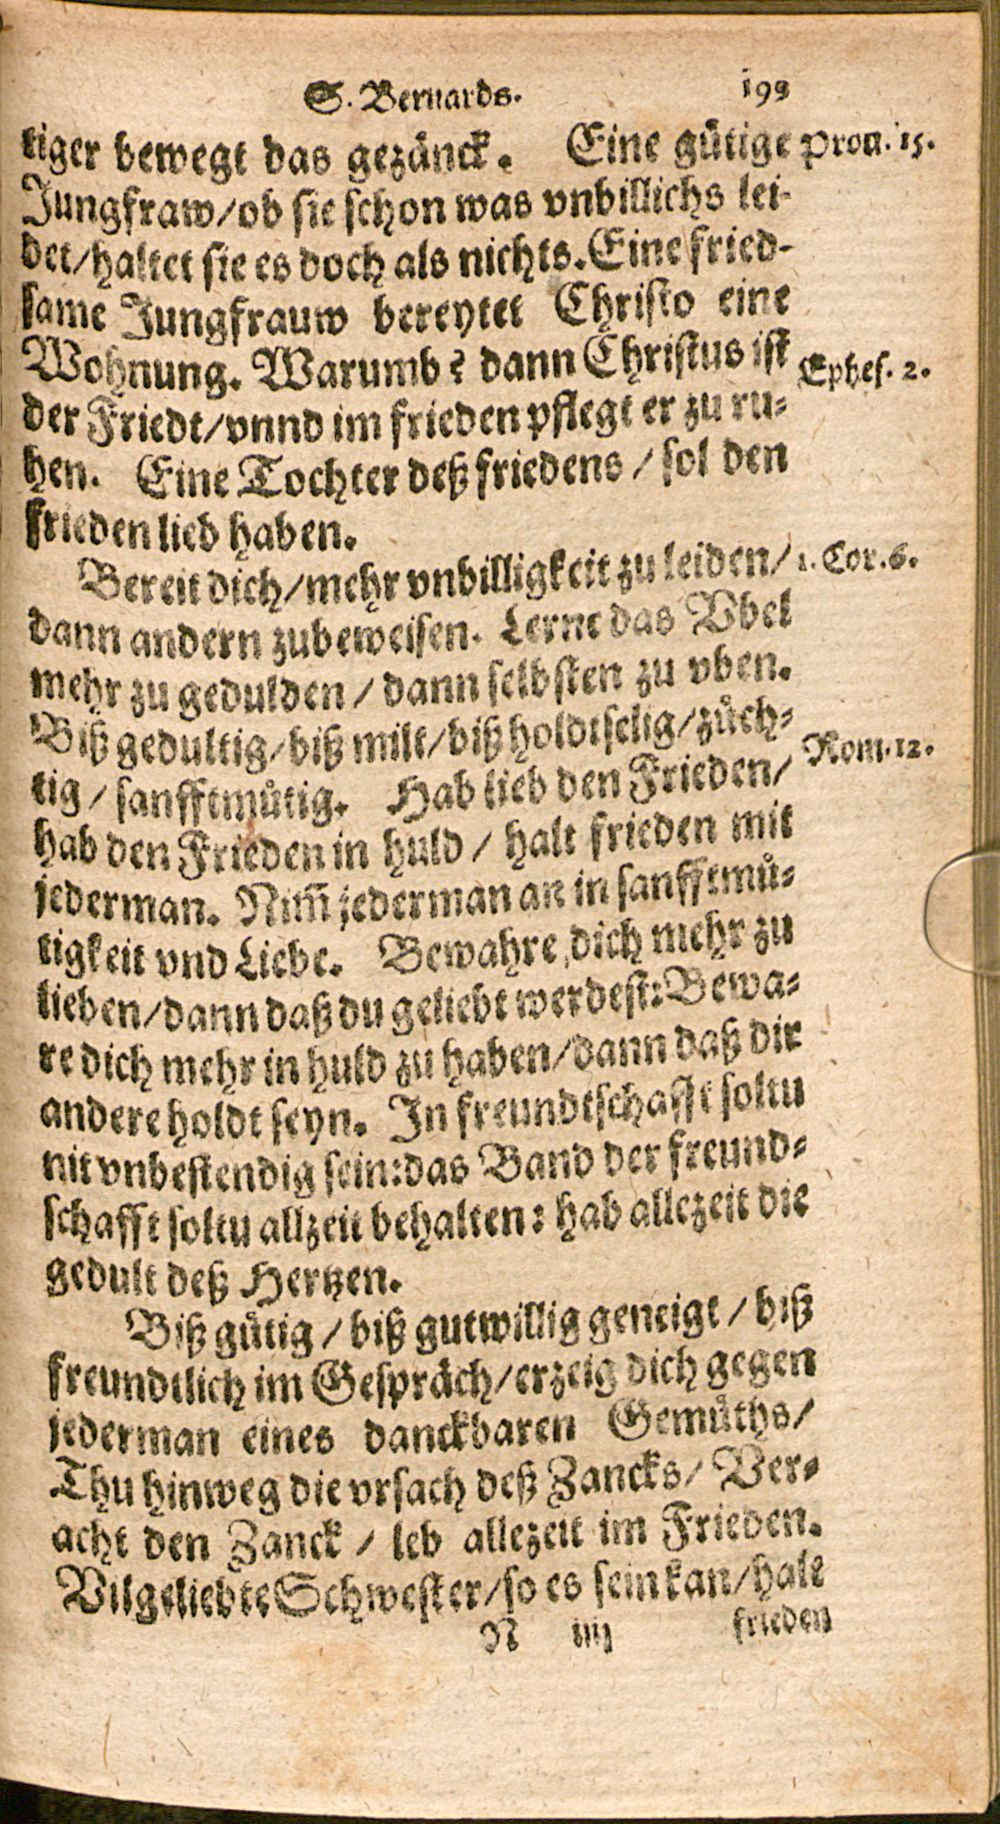 S. Bernards. 199
tiger bewegt das gezänck. Eine gütige Prou. 15.
Jungfraw/ob sie schon was vnbillichs lei-
det/haltet sie es doch als nichts. Eine fried-
same Jungfrauw bereytet Christo eine
Wohnung. Warumb? dann Christus ist Ephes. 2.
der Friedt/vnnd im frieden pflegt er zu ru-
hen. Eine Tochter deß friedens / sol den
frieden lieb haben.
Bereit dich/mehr vnbilligkeit zu leiden/ 1. Cor. 6.
dann andern zubeweisen. Lerne das Vbel
mehr zu gedulden / dann selbsten zu vben.
Biß gedultig/biß milt/biß holdtselig/züch-
tig / sanfftmütig. Hab lieb den Frieden/ Rom. 12.
hab den Frieden in huld / halt frieden mit
jederman. Nim̃ jederman an in sanfftmü-
tigkeit vnd Liebe. Bewahre dich mehr zu
lieben/dann daß du geliebt werdest: Bewa-
re dich mehr in huld zu haben/dann daß dir
andere holdt seyn. In freundtschafft soltu
nit vnbestendig sein: das Band der freund-
schafft soltu allzeit behalten: hab allezeit die
gedult deß Hertzen.
Biß gütig / biß gutwillig geneigt / biß
freundtlich im Gespräch/erzeig dich gegen
jederman eines danckbaren Gemüths/
Thu hinweg die vrsach deß Zancks/ Ver-
acht den Zanck / leb allezeit im Frieden.
Vilgeliebte Schwester/so es sein kan/halt
N iiij frieden